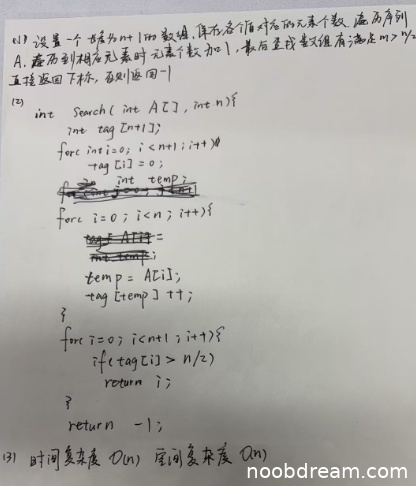 (1) 设置一个长度为n+1的数组,保存各个值对应的元素个数,遍历序列
A,遍历到相应元素时元素个数加1,最后查找数组有满足m>n/2
直接返回下标,否则返回-1
(2)
int Search( int A[], int n){
int tag[n+1];
for( int i=0; i<n+1; i++)
tag[i]=0;
int temp;
for( i=0; i<n; i++){
temp = A[i];
tag[temp]++;
}
for( i=0; i<n+1; i++){
if(tag[i]>n/2)
return i;
}
return -1;
(3) 时间复杂度 O(n) 空间复杂度 O(n)
noobdream.com